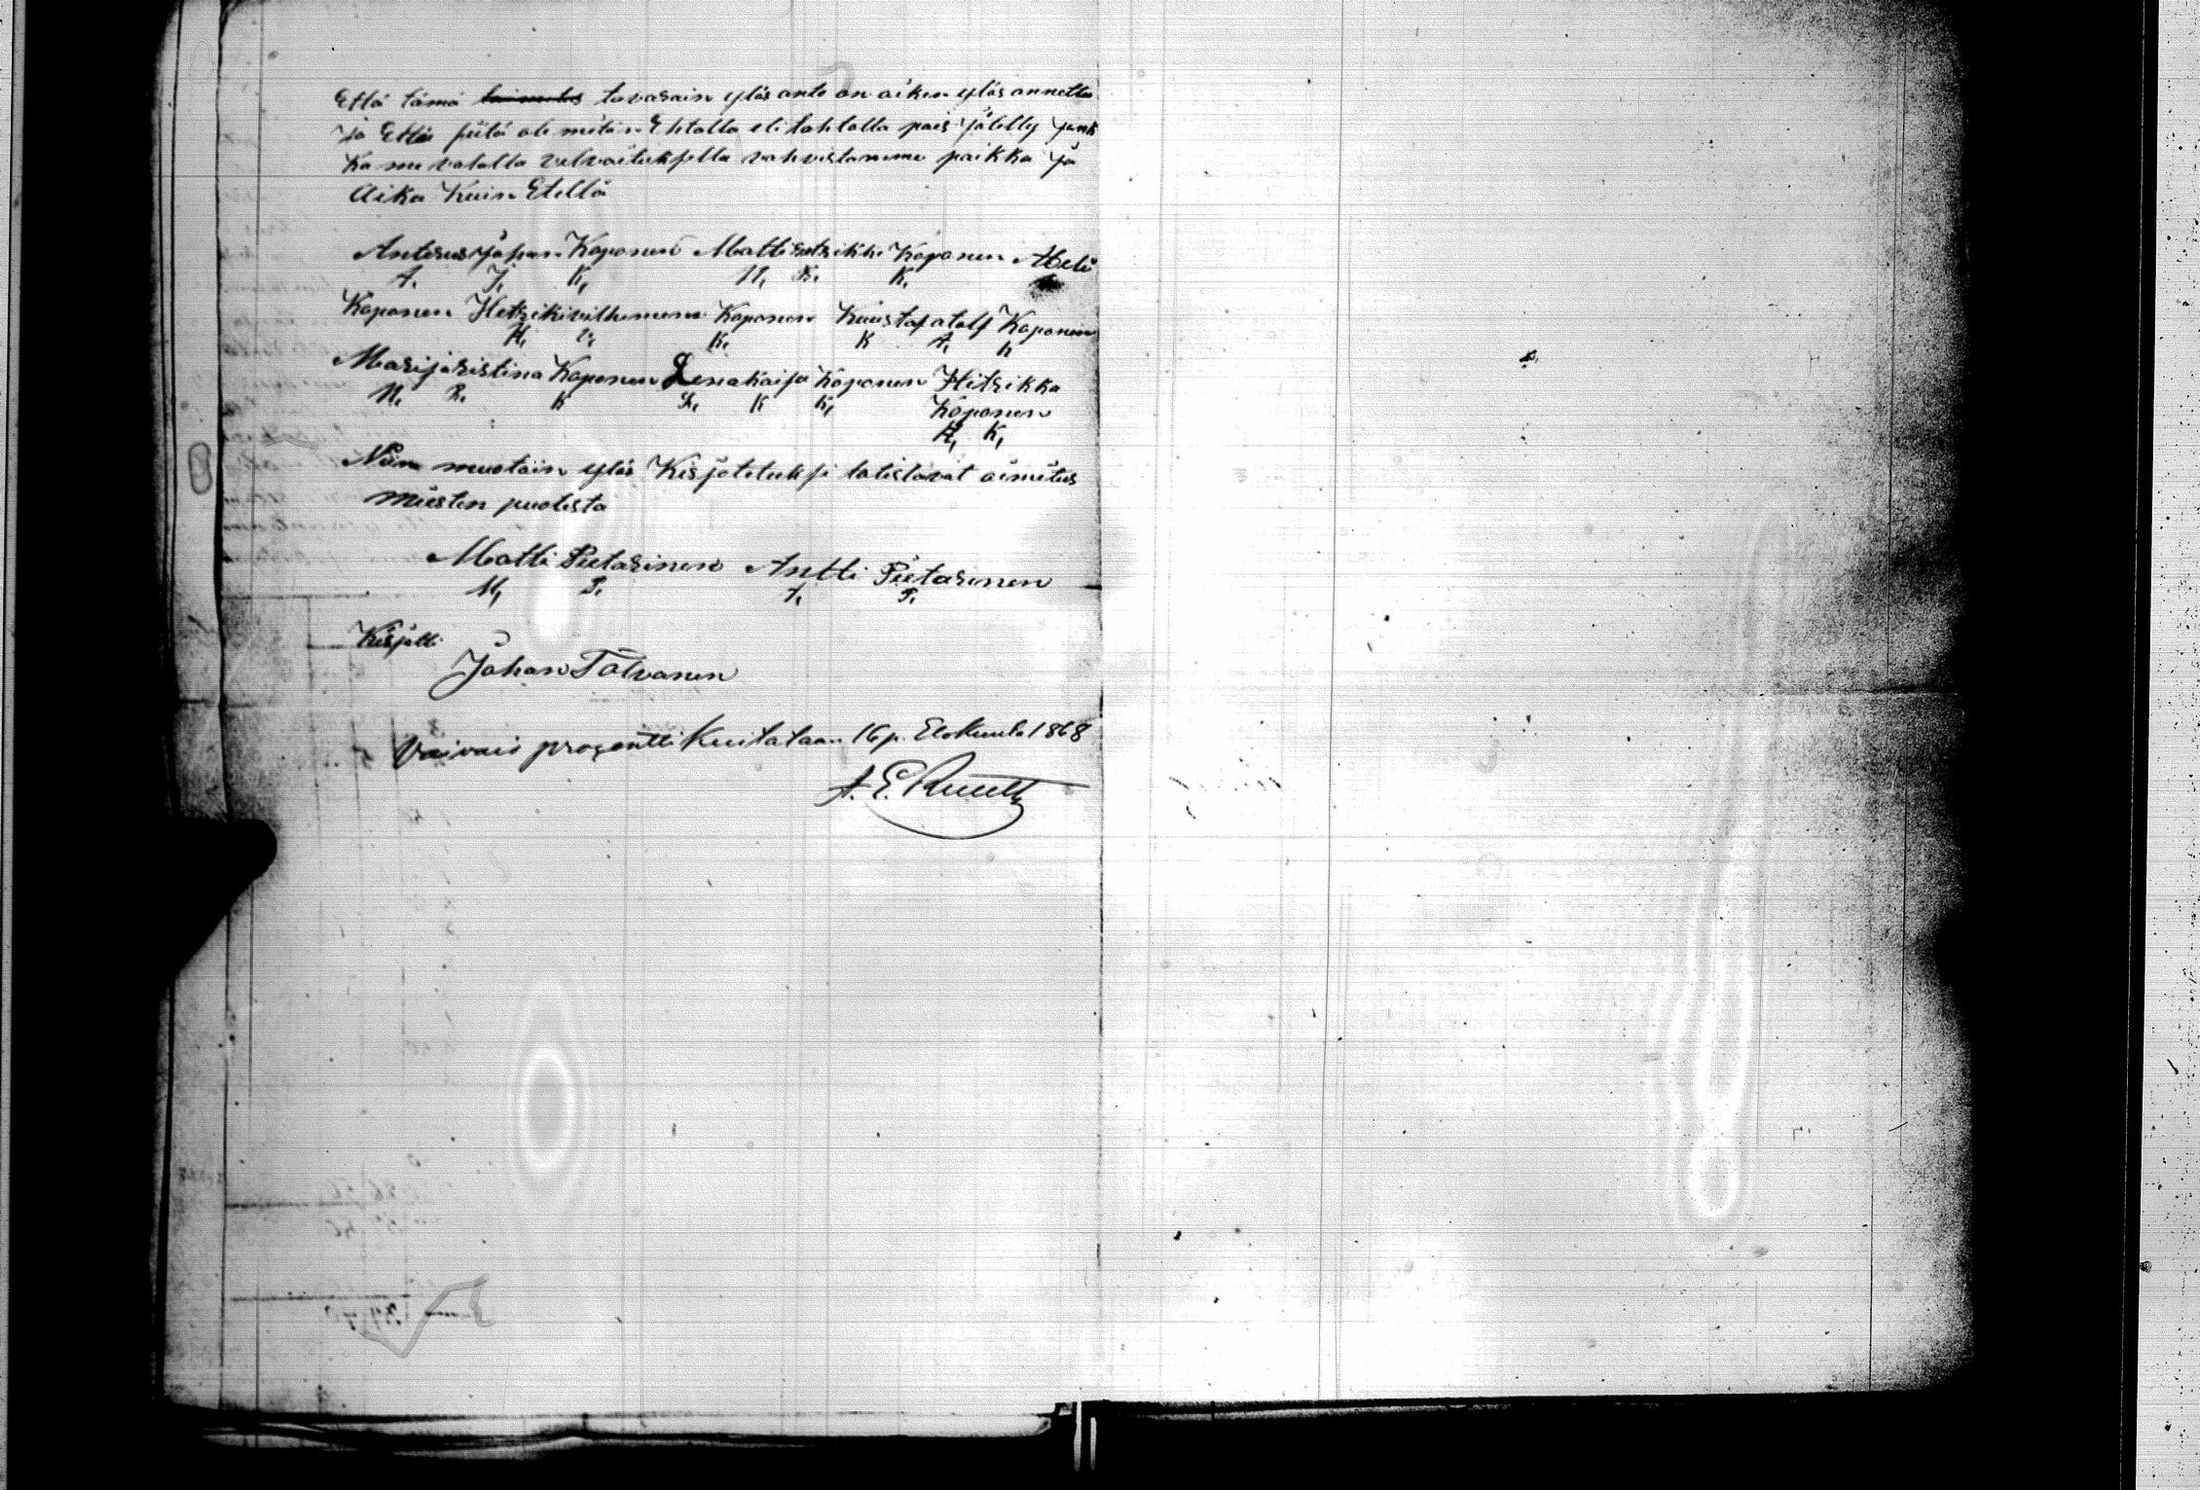 Että tämä toimitus tavarain ylös anto on oiken ylös annettu
ja Että siitä ole mitän Ehtolla eli tahtolla pois jätetty jonk
ka me valalla velvoituksella vahvistamme paikka ja
Aika Kuin Etellä
Anterus Juhana Koponen Matti Hetrikki Koponen Abeli
A, J, K, M, H, K,
Koponen Hetrikivilhemmi Koponen Kuustaf atolf Koponen
H, v, K, K A, K
Marijaristina Koponen Lenakaisa Koponen Hitrikka
M, R, K L, K K,
Koponen
H, K,
Näin muotoin ylös Kirjotetuksi totistavat oimitus
miesten puolesta
Matti Pietarinen Antti Pietarinen
M, P, A, P,
Kirjotti
Johan Tolvanen
Vaivais prosentti Kuitataan 16 p. Elokuuta 1868
A. E. Ruuth